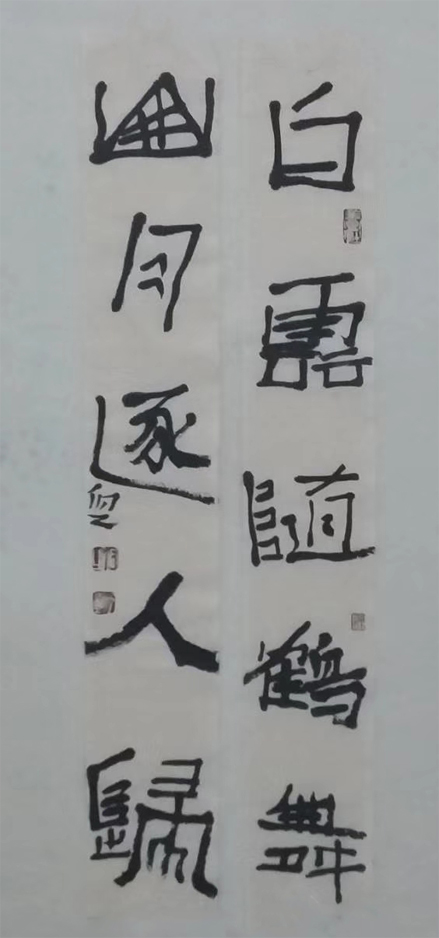 白雲隨鶴舞
山月逐人歸